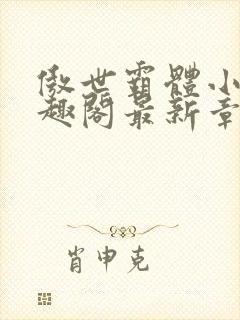 傲世霸體小
趣閣最新章
肖申克